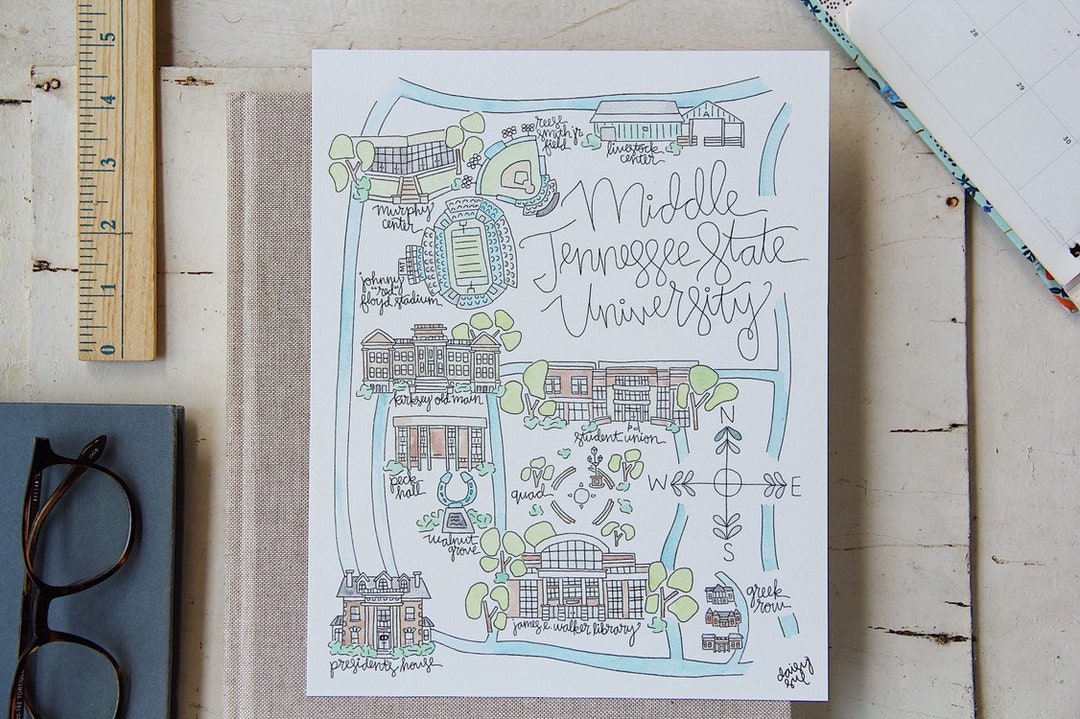 5
4
3
2
1
0
28
29
30
reese
smith jr
field
livestock
center
murphy
center
Middle
Tennessee State
University
johnny
"red"
floyd stadium
kirksey old main
student union
peck
hall
quad
walnut
grove
N
W
E
S
greek
row
james e. walker library
president's house
daisy